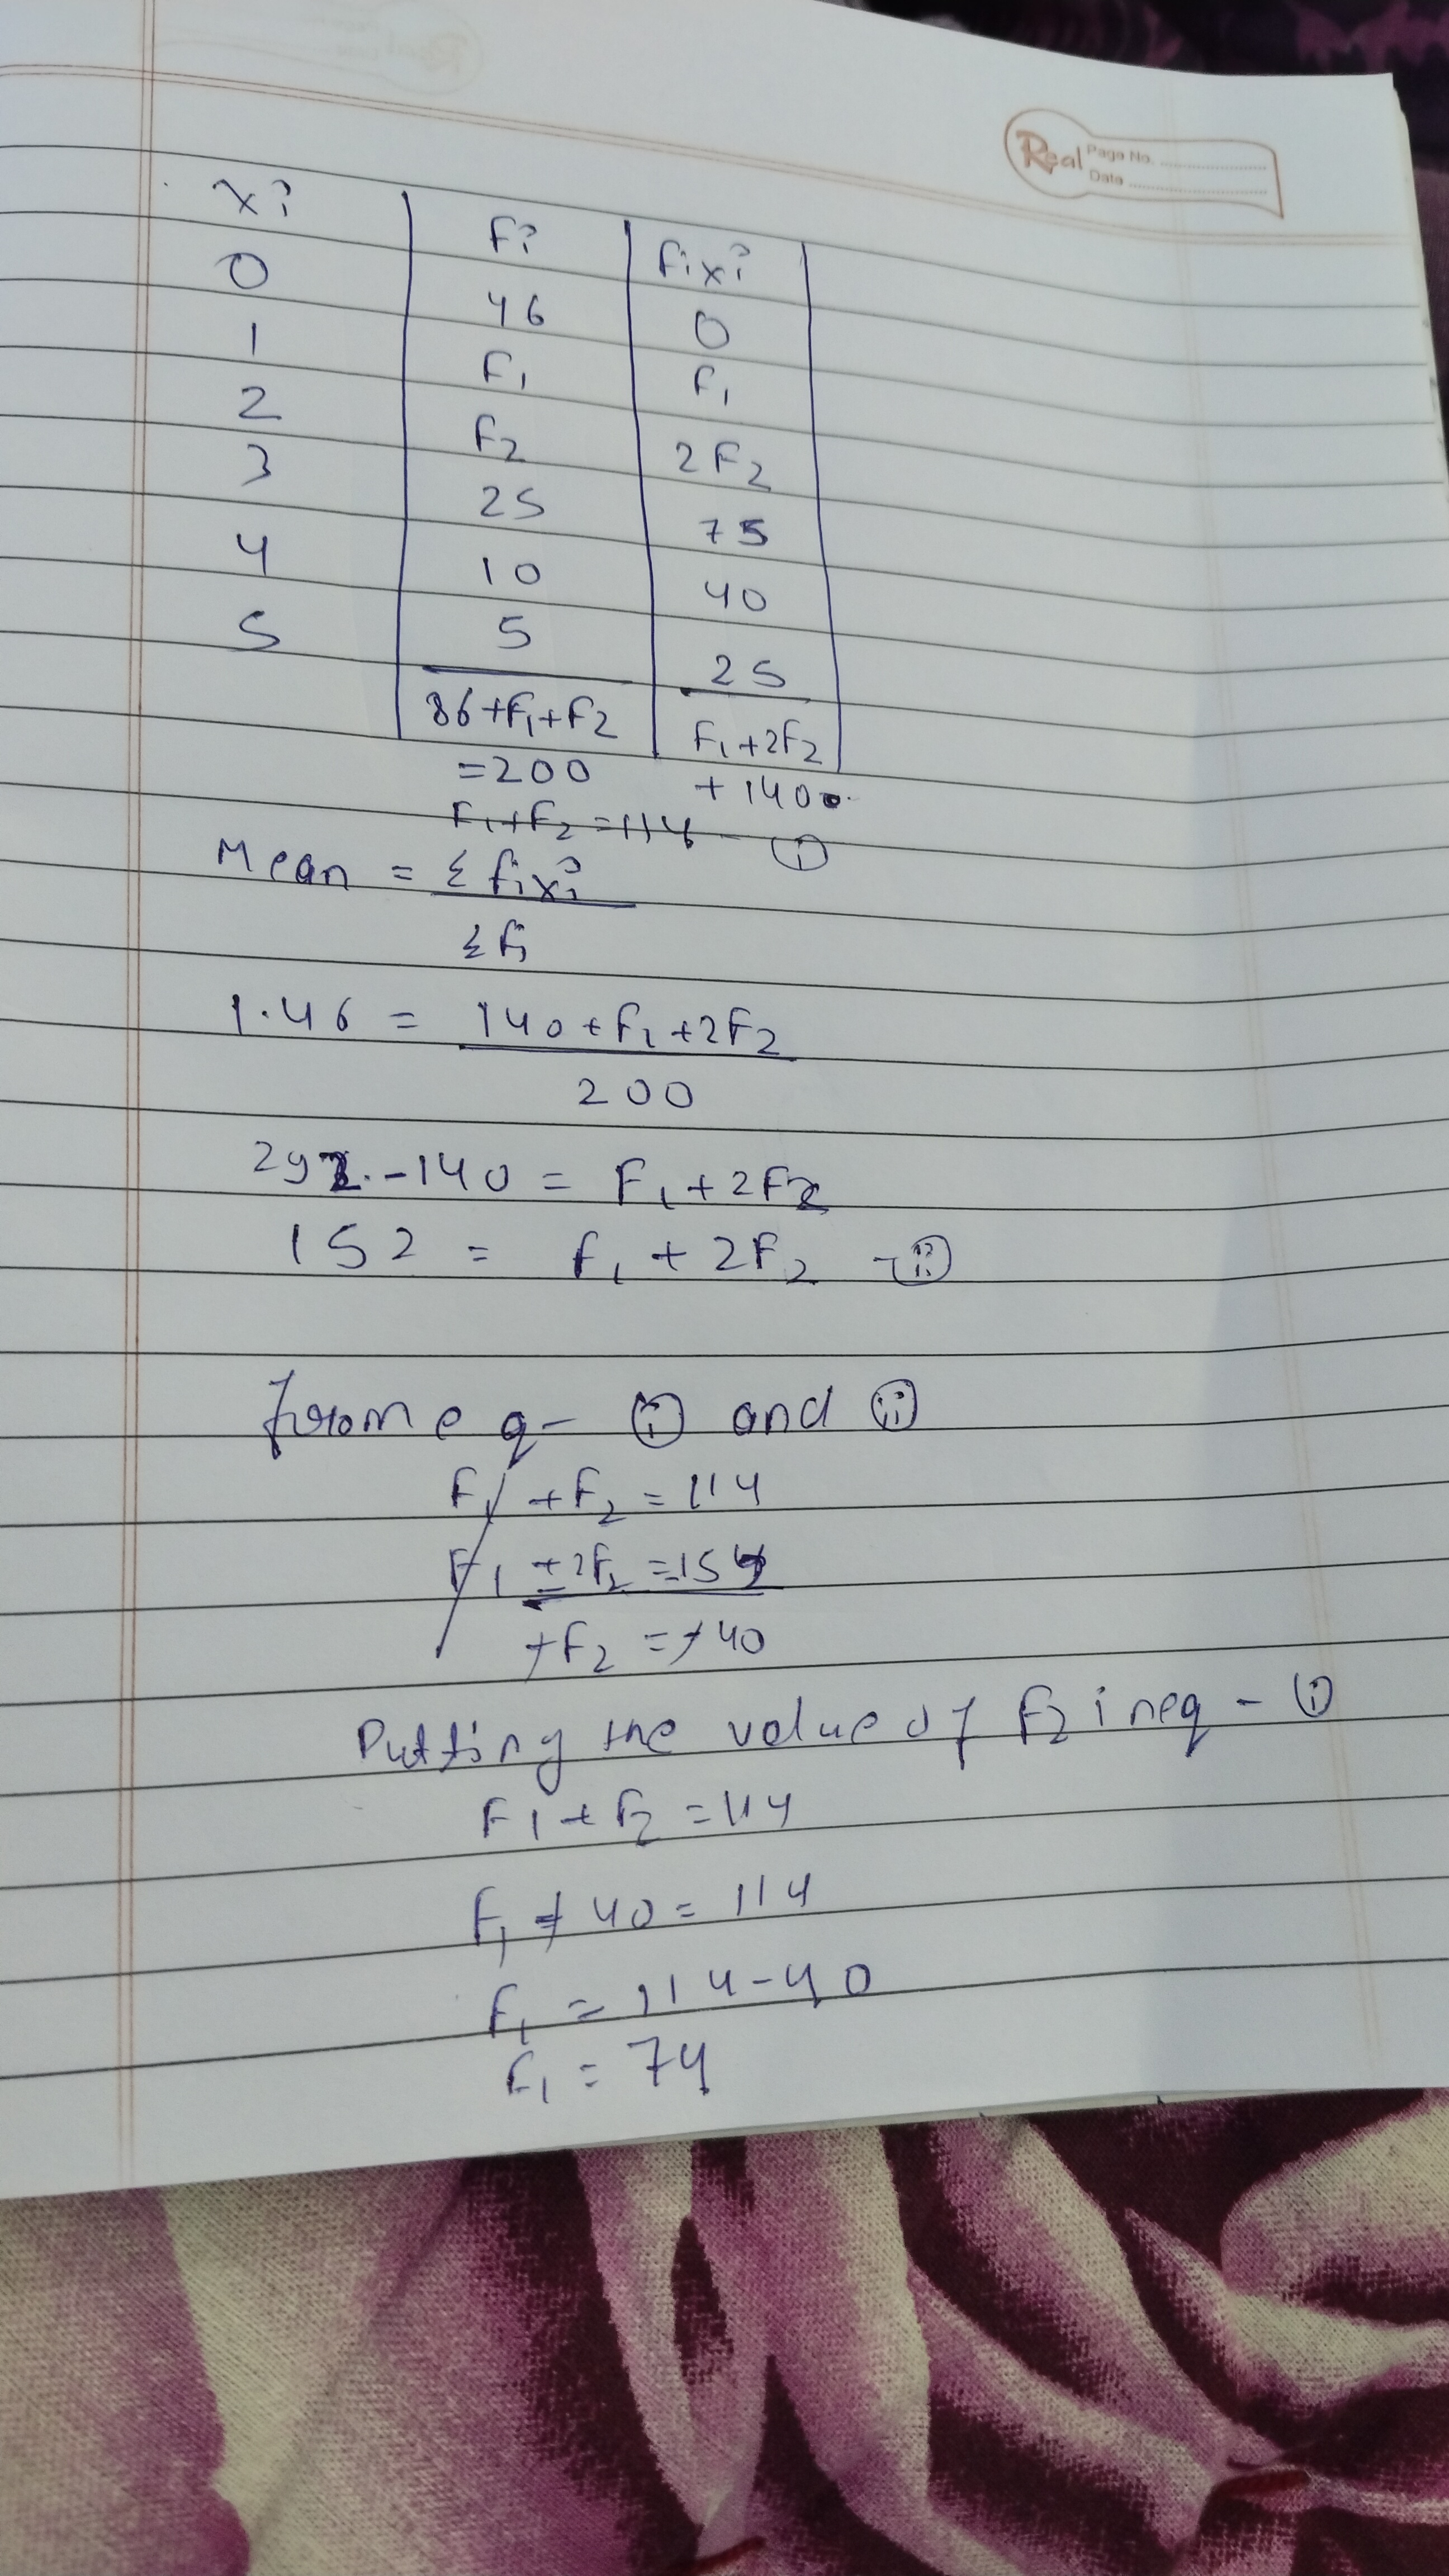 Real Page No.
Date
xi fi fixi
0 46 0
1 F1 F1
2 F2 2F2
3 25 75
4 10 40
5 5 25
86+F1+F2 F1+2F2
=200 +140
F1+F2=114 - (i)
Mean = Σfixi
Σfi
1.46 = 140+F1+2F2
200
292-140 = F1+2F2
152 = F1+2F2 - (ii)
from eq- (i) and (ii)
F1+F2=114
F1+2F2=154
+F2=+40
Putting the value of F2 in eq - (i)
F1+F2=114
F1+40=114
F1=114-40
F1=74